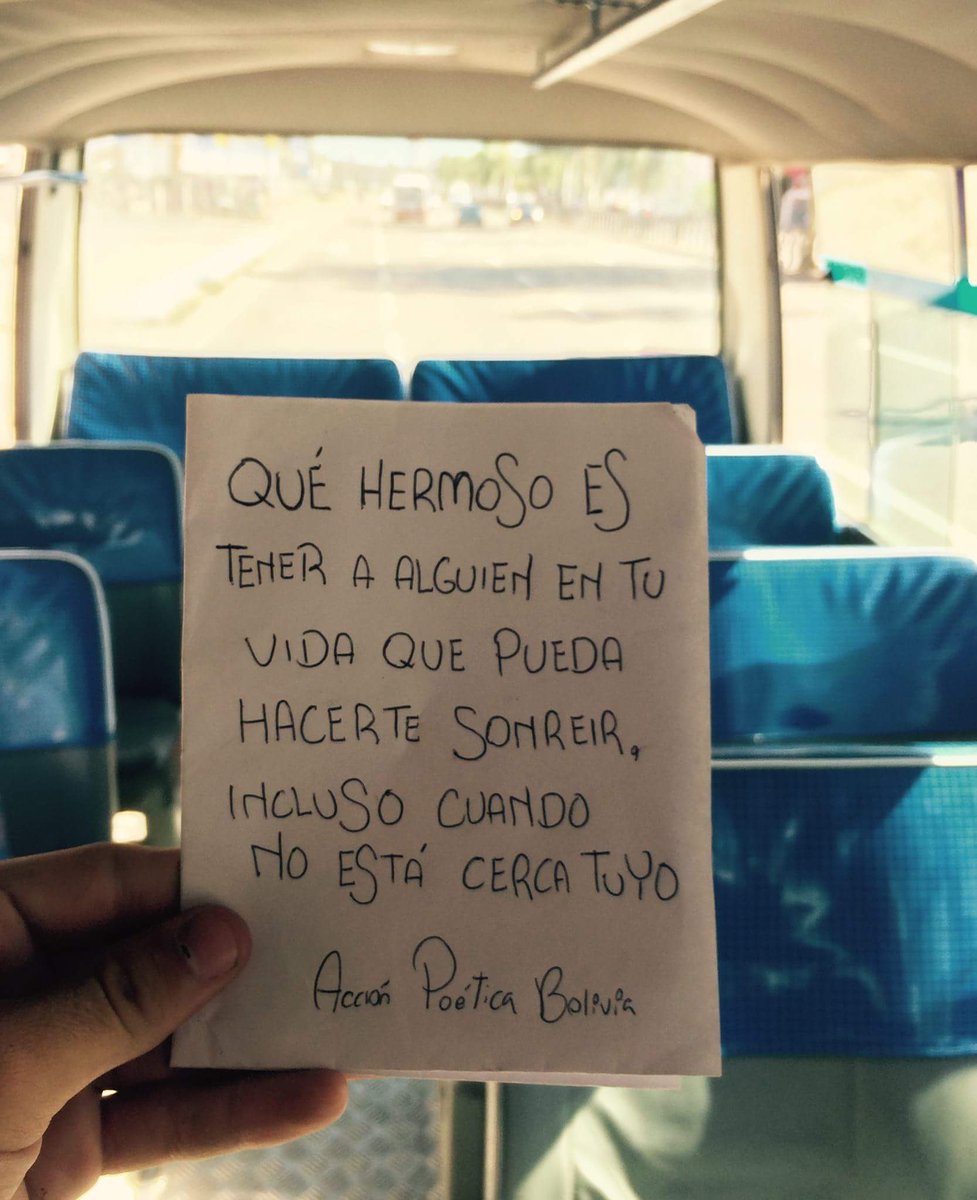 QUÉ HERMOSO ES
TENER A ALGUIEN EN TU
VIDA QUE PUEDA
HACERTE SONREIR,
INCLUSO CUANDO
NO ESTÁ CERCA TUYO
Acción Poética Bolivia